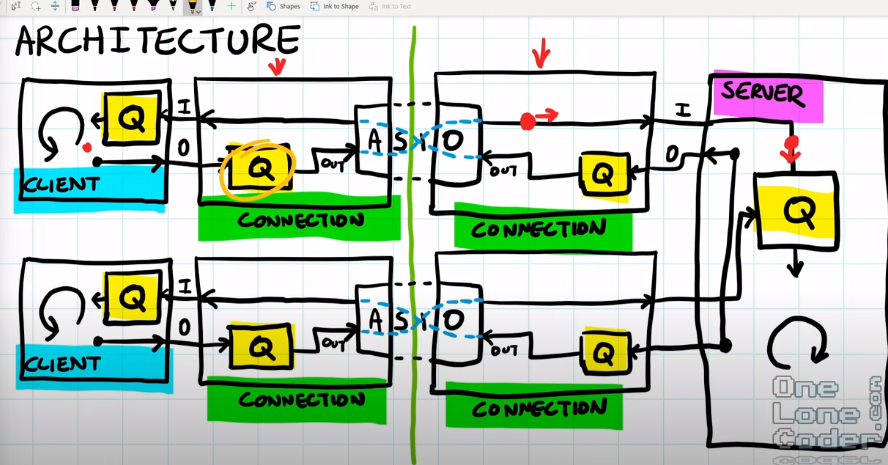 Shapes
Ink to Shape
Ink to Text
ARCHITECTURE
Q
I
O
CLIENT
Q
OUT
CONNECTION
A S I O
OUT
Q
CONNECTION
I
O
SERVER
Q
Q
I
O
CLIENT
Q
OUT
CONNECTION
A S i O
OUT
Q
CONNECTION
One
Lone
Coder.com